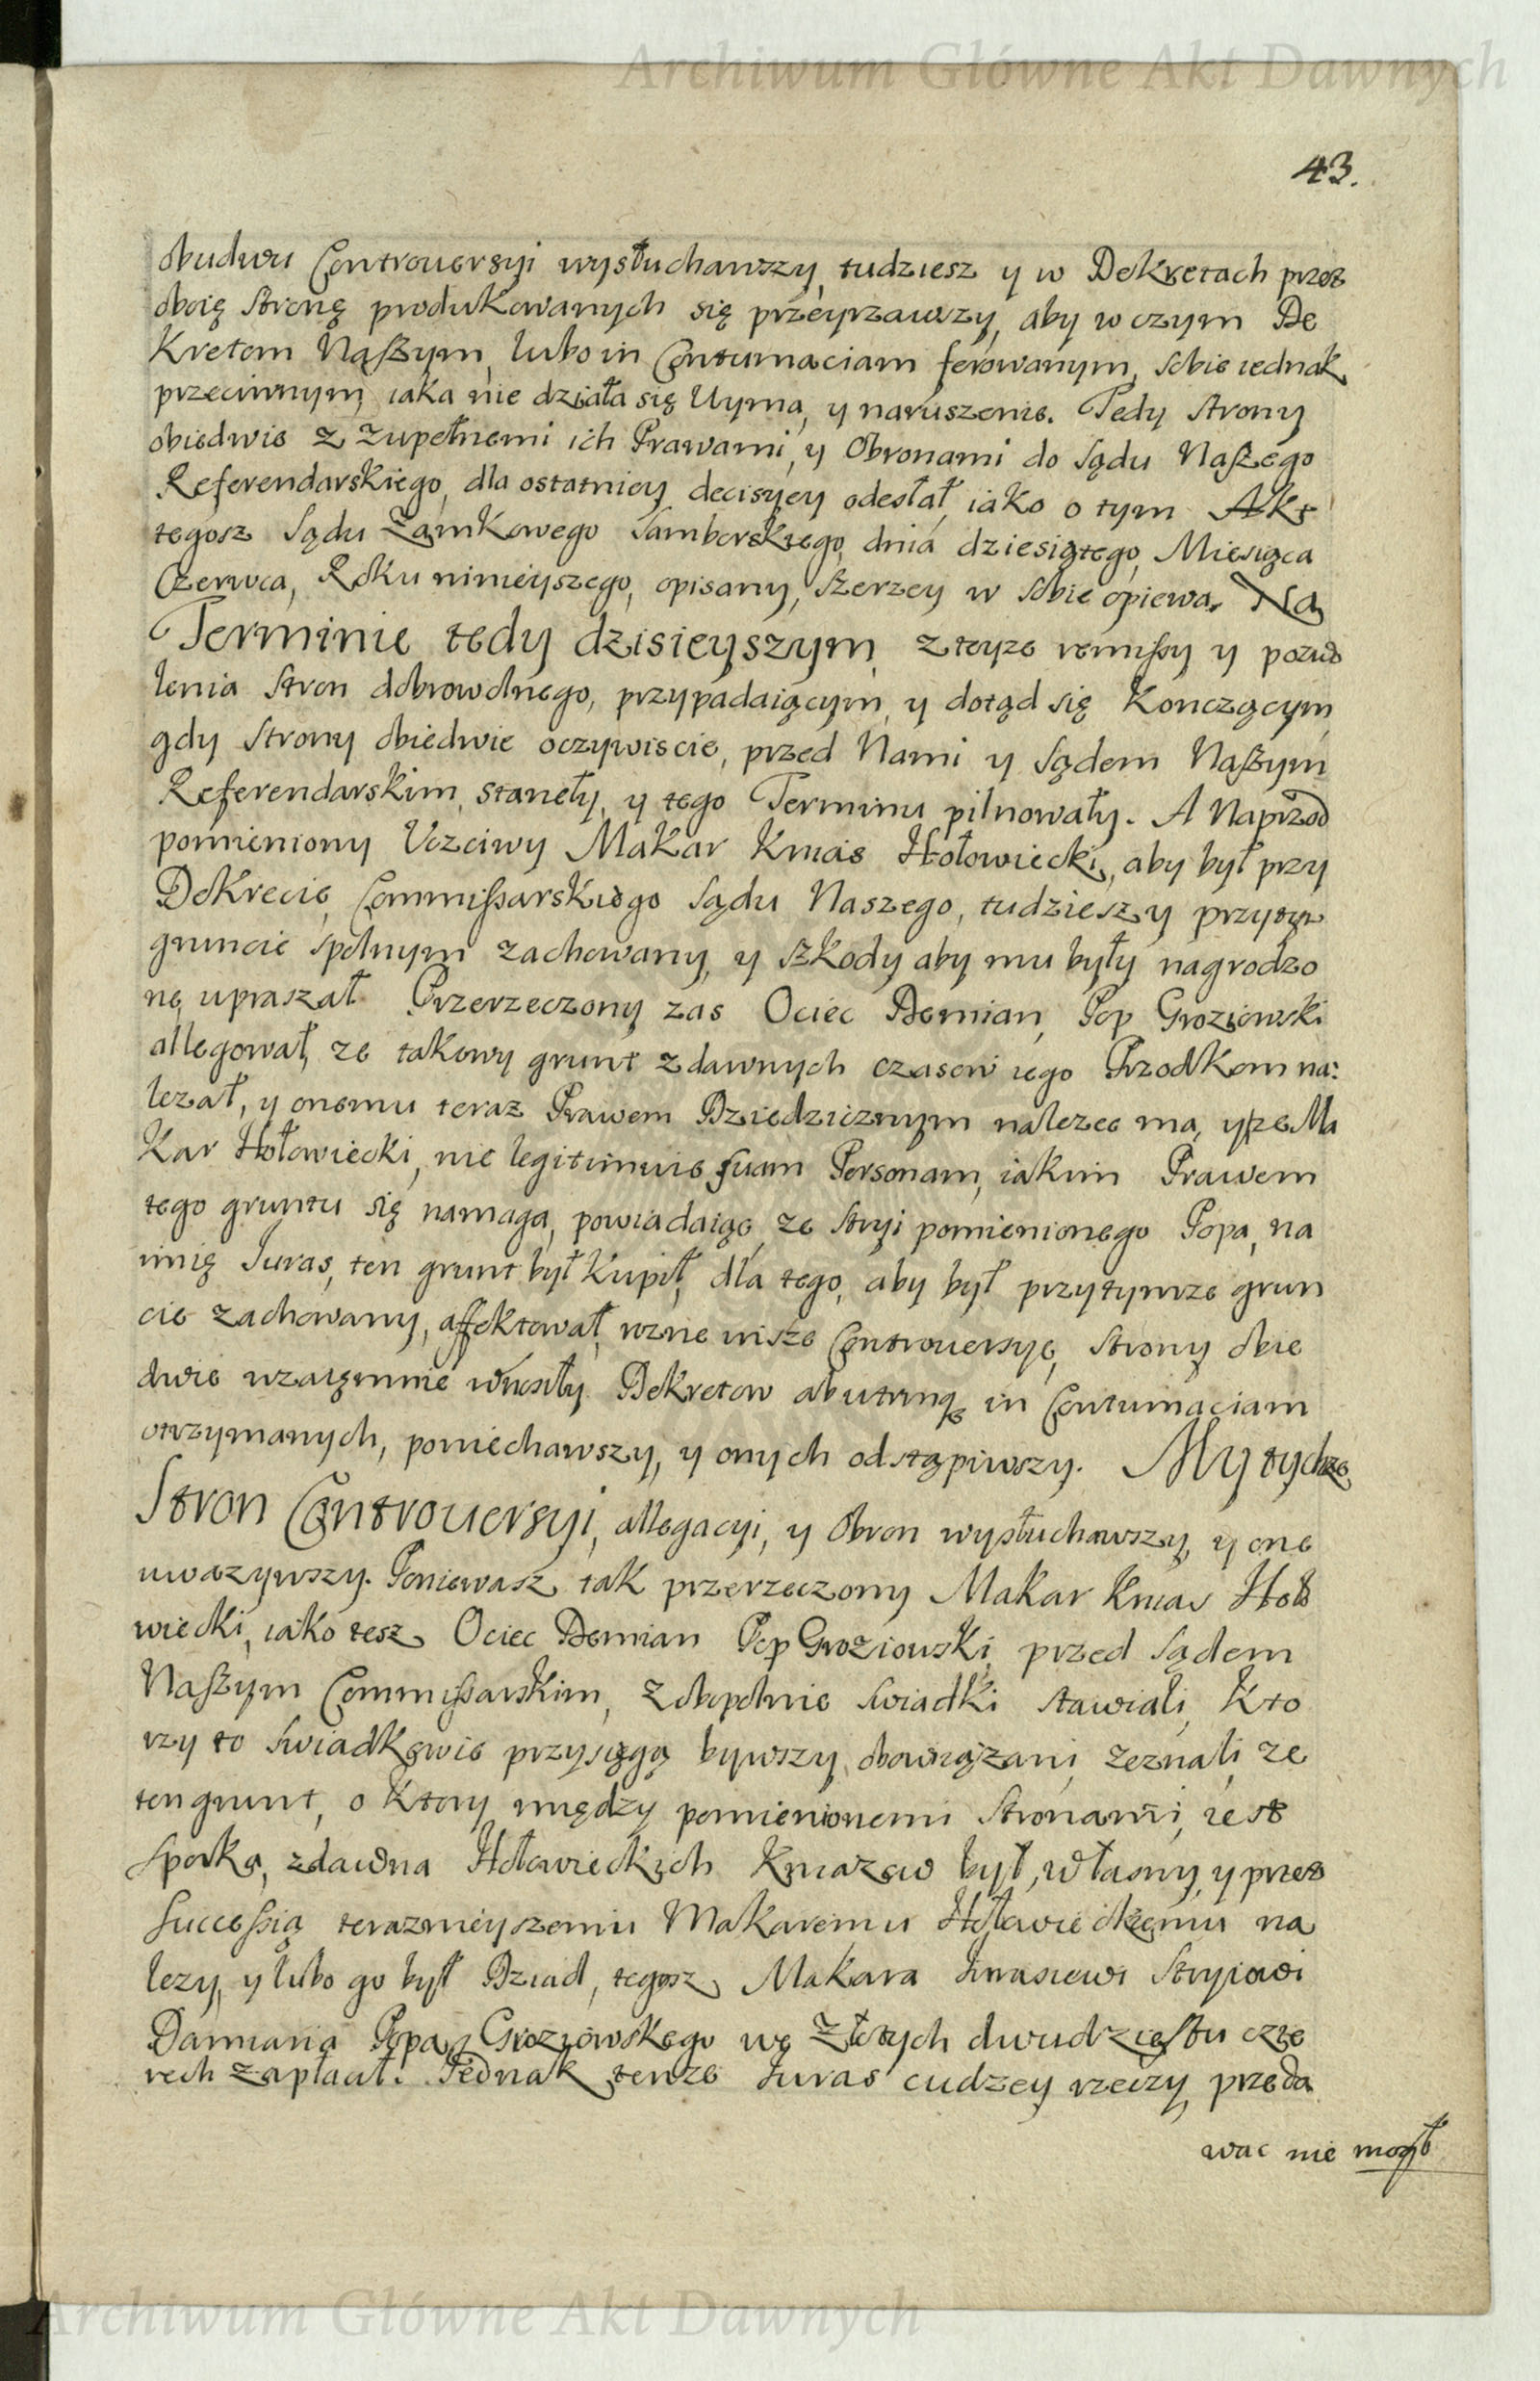 Archiwum Główne Akt Dawnych
43.
obudwu Controuersyi wysłuchawszy, tudziesz y w Dekretach przez
oboię stronę produkowanych się przeyrzawszy, aby w czym De
Kretem Naszym, lubo in Contumaciam ferowanym, sobie iednak
przeciwnym, iaka nie działa się Uyma, y naruszenie. Tedy strony
obiedwie z zupełnemi ich Prawami, y Obronami do Sądu Naszego
Referendarskiego, dla ostatniey decisyey odesłał, iako o tym Akt
tegosz Sądu Zamkowego Samborskiego, dnia dziesiątego, Miesiąca
Czerwca, Roku ninieyszego, opisany, szerzey w sobie opiewa. Na
Terminie tedy dzisieyszym, z teyze remissy y pozwo
lenia stron dobrowolnego, przypadaiącym, y dotąd się Konczącym,
gdy strony obiedwie oczywiscie, przed Nami y Sądem Naszym
Referendarskim, staneły, y tego Terminu pilnowały. A Naprzod
pomieniony Uczciwy Makar Kniaś Hołowiecki, aby był przy
Dekrecie, Commissarskiego Sądu Naszego, tudziesz y przy tym
gruncie spolnym zachowany, y szkody aby mu były nagrodzo
ne, upraszał. Przerzeczony zas Ociec Demian, Pop Groziowski
allegował, ze takowy grunt z dawnych czasow iego Przodkom na:
lezał, y onemu teraz Prawem Dziedzicznym nalezec ma, y ze Ma
Kar Hołowiecki, nie legitimuie suam Personam, iakim Prawem
tego gruntu się namaga, powiadaiąc, ze Stryi pomienionego Popa, na
imię Juras, ten grunt był Kupił, dla tego, aby był przy tymze grun
cie zachowany, affektował, rozne insze Controuersye, strony obie
dwie wzaiemnie wnosiły. Dekretow ab utrinq in Contumaciam
otrzymanych, poniechawszy, y onych odstąpiwszy. My tychze
Stron Controuersyi, allegacyi, y Obron wysłuchawszy, y one
uwazywszy. Poniewasz tak przerzeczony Makar Kniaś Hoło
wiecki, iako tesz Ociec Demian Pop Groziowski, przed Sądem
Naszym Commissarskim, z obopolnie swiadki stawiali, Kto
rzy to swiadkowie przysięgą bywszy obowiązani, zeznali, ze
ten grunt, o Ktory między pomienionemi Stronami, iest
sporka, zdawna Hołowieckich Kniazow był własny, y przez
Successią teraznieyszemu Makaremu Hołowieckiemu na
lezy, y lubo go był Dziad, tegosz Makara Jurasiewi Stryiowi
Damiana Popa Groziowskego we Złotych dwudziestu czte
rech zapłacił. Jednak tenze Juras cudzey rzeczy przeda
wac nie mogł
Archiwum Główne Akt Dawnych